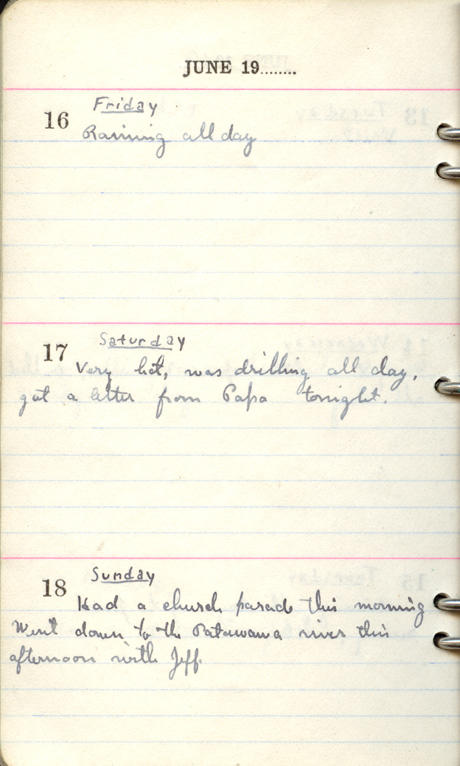 JUNE 19........
Friday
16
Raining all day
Saturday
17
Very hot, was drilling all day,
got a letter from Papa tonight.
Sunday
18
Had a church parade this morning
Went down to the Patawawa river this
afternoon with Jeff.